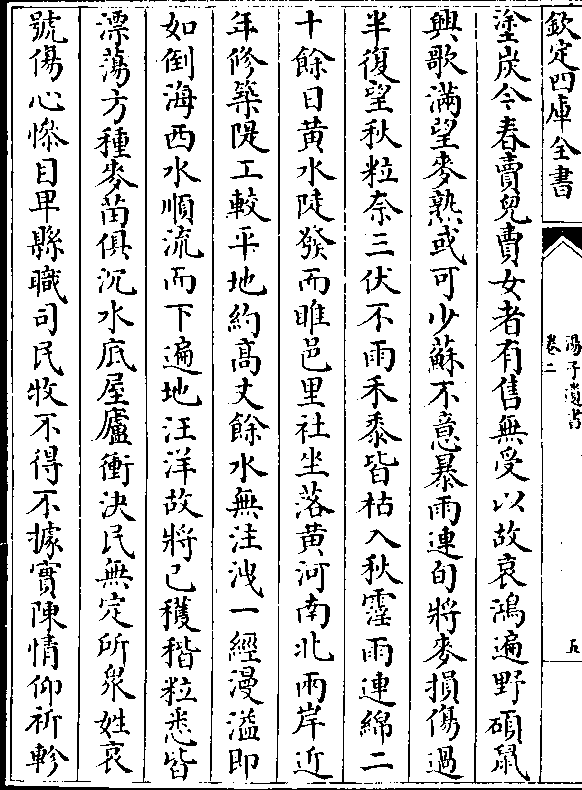 欽定四庫全書
湯子遺書
卷二
五
塗炭今春賣兒賣女者有售無受以故哀鴻遍野碩鼠
興歌滿望麥熟或可少蘇不意暴雨連旬將麥損傷過
半復望秋粒奈三伏不雨禾黍皆枯入秋霪雨連綿二
十餘日黃水陡發而睢邑里社坐落黃河南北兩岸近
年修築隄工較平地約高丈餘水無注洩一經漫溢即
如倒海西水順流而下遍地汪洋故將已穫稭粒悉皆
漂蕩方種麥苗俱沉水底屋廬衝決民無定所衆姓哀
號傷心慘目卑縣職司民牧不得不據實陳情仰祈軫